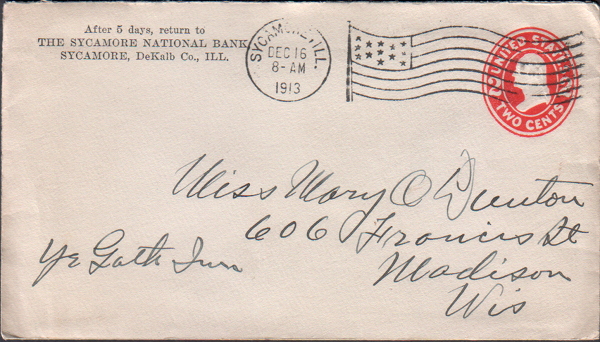 After 5 days, return to
THE SYCAMORE NATIONAL BANK
SYCAMORE, DeKalb Co., ILL.
SYCAMORE, ILL.
DEC 16
8-AM
1913
UNITED STATES
TWO CENTS
Miss Mary O Dunton
606 Francis St
Ye Gath Inn
Madison
Wis